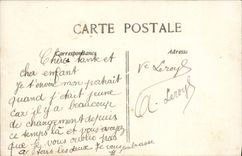 CARTE POSTALE
Correspondance
Adresse
Chère tante et
cher enfant
je t'envoie mon portrait
quand j'était jeune
car il y a beaucoup
de changement depuis
ce temps là et vous voyez
que je vous oublie pas
à tous les deux je vous embrasse
Ve Leroy
A. Leroy